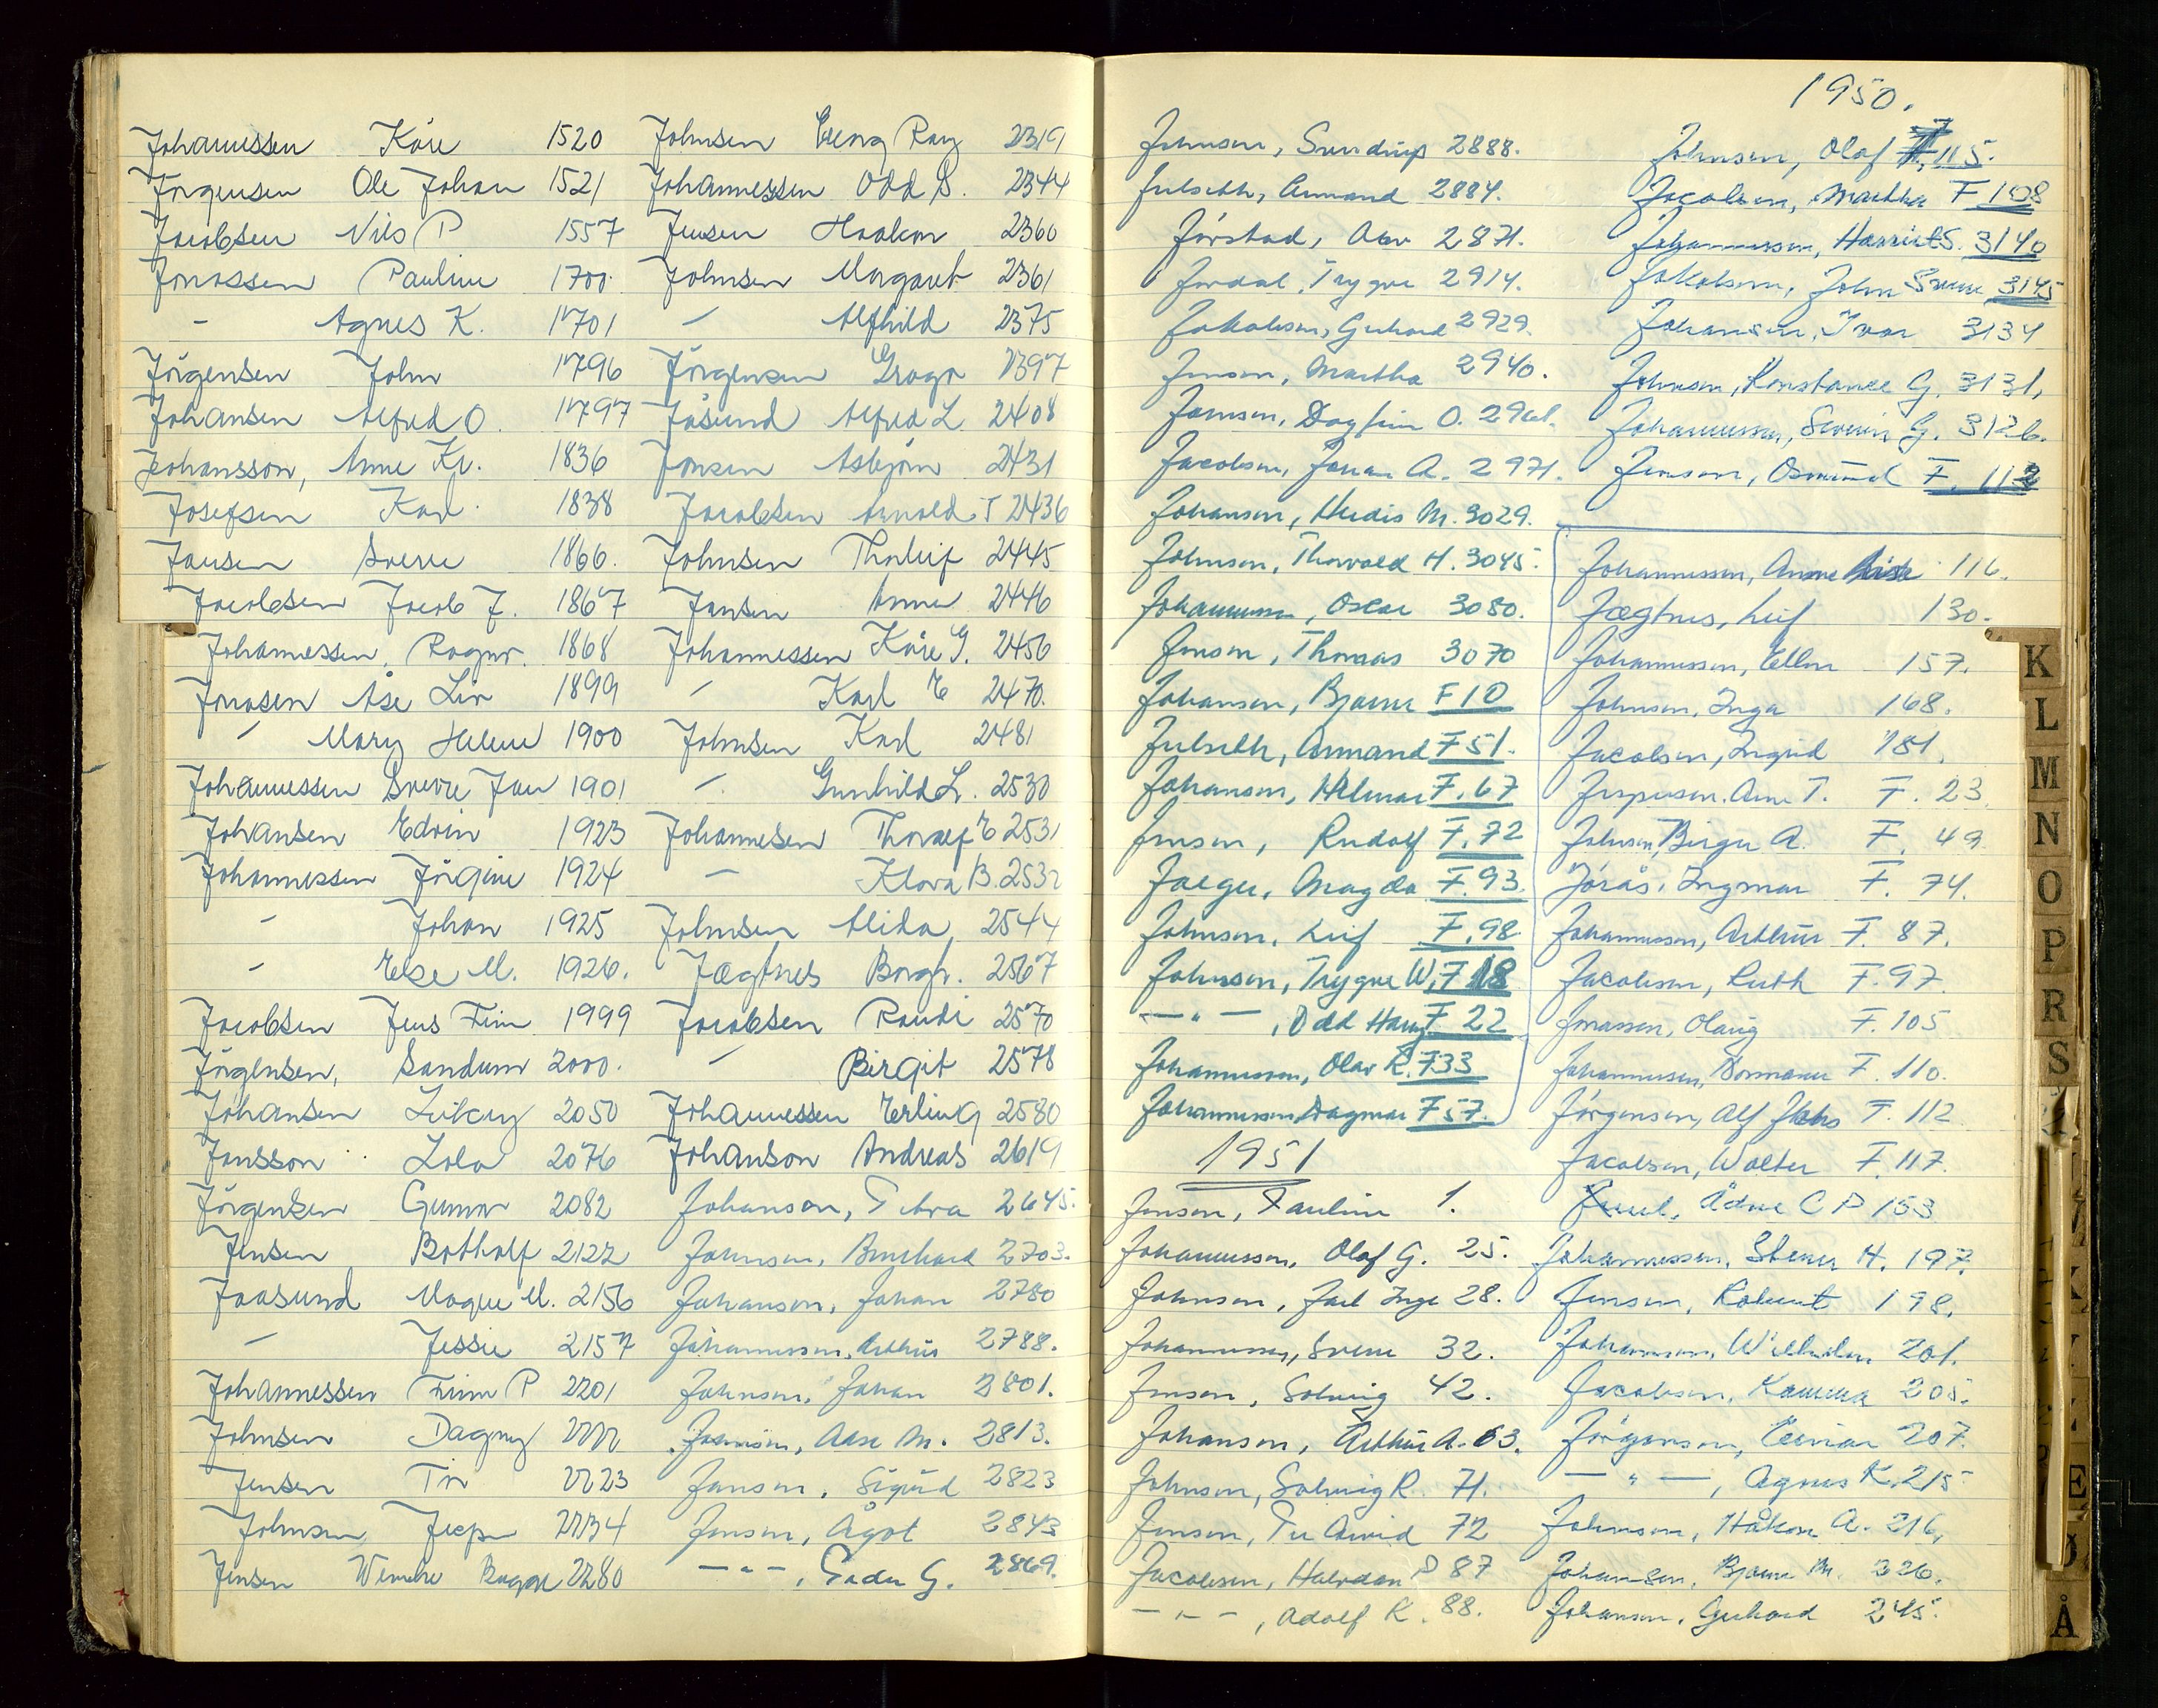 Johannessen Kåre 1520
Jörgensen Ole Johan 1521
Jacobsen Nils P 1557
Jonassen Pauline 1700
- Agnes K. 1701
Jörgensen John 1796
Johansen Alfred O. 1797
Johansson, Anne Kr. 1836
Josefsen Karl 1838
Jansen Sverre 1866.
Jacobsen Jacob J. 1867
Johannessen, Ragnv. 1868
Jonasen Åse Liv 1899
- Mary Helene 1900
Johannessen Sverre Jan 1901
Johansen Edvin 1923
Johannessen Jörgine 1924
- Johan 1925
- Else M. 1926.
Jacobsen Jens Finn 1999
Jörgensen, Sandum 2000.
Johansen 2050
Jonsson Lola 2076
Jörgensen Gunnar 2082
Jensen Botholf 2122
Jaasund Magne M. 2156
- Jessie 2157
Johannessen Finn P 2201
Johnsen Dagny 2222
Jensen Tor 2223
Johnsen, Jeep 2234
Jensen Wenche Bagge 2280
Johnsen Georg Ray 2319
Johannessen Odd S. 2344
Jensen Haakon 2360
Johnsen Margaret 2361
- Alfhild 2375
Jörgensen 2397
Jåsund Alfred L 2408
Jonsen Asbjörn 2431
Jacobsen Arnold T 2436
Johnsen Thorleif 2445
Jansen Anna 2446
Johannessen Kåre G. 2456
- Karl E 2470.
Johnsen Karl 2481
- Gunhild L. 2530
Johannesen Thoralf E 2531
- Klara B. 2532
Johnsen Alida 2544
Jægtnes Borgh. 2567
Jacobsen Randi 2570
- Birgit 2578
Johannessen Erling 2580
Johanson Andreas 2619
Johansen, Tora 2645.
Johnsen, Bernhard 2703.
Johansen, Johan 2780
Johannessen, Arthur 2788.
Johnsen, Johan 2801.
Johnsen, Aase M. 2813.
Jansen, Sigurd 2823
Jensen, Ågot 2843
- " -, Peder G. 2869.
Johnsen, 2888.
Julseth, Armand 2884.
Jørstad, 2871.
Jordal, Trygve 2914.
Jakobsen, Gerhard 2929.
Jensen, Martha 2940.
Jonsson, Dagfinn O. 2961.
Jacobsen, Johan A. 2971.
Johansen, Herdis M. 3029.
Johnsen, Thorvald H. 3045.
Johannessen, Oscar 3080.
Jensen, Thomas 3070
Johansen, Bjarne F 10
Julseth, Armand F 51.
Johansen, Hilmar F. 67
Jensen, Rudolf F. 72
Jaeger, Magda F. 93.
Johnsen, Leif F. 98.
Johnsen, Trygve W. F 18
- " -, Odd Harry F. 22
Johannessen, Olav K. F. 33
Johannessen, Dagmar F 57.
1951
Jensen, Pauline 1.
Johannessen, Olaf G. 25.
Johnsen, Jarl Inge 28.
Johannessen, Sverre 32.
Jensen, Solveig 42.
Johansen, Arthur A. 63.
Johnsen, Solveig R. 71.
Jensen, Per Arvid 72
Jacobsen, Halvdan P 87
- " -, Adolf K. 88.
1950.
Johnsen, Olaf 115.
Jacobsen, Martha F 108
Johannessen, Harriet S. 3140
Jakobsen, John Sverre 3145
Johansen, Ivar 3134
Johnsen, Konstance G. 3131,
Johannessen, Severin G. 3126.
Jensen, Osmund F. 112
Johannessen, Anne Lise 116.
Jægtnes, Leif 130.
Johannessen, Ellen 157.
Johnsen, Inga 168.
Jacobsen, Ingrid 181.
Jespersen, Arne T. F. 23.
Johnsen, Birger A. F. 49
Jørås, Ingmar F. 74.
Johannessen, Arthur F. 87.
Jacobsen, Ruth F. 97.
Jonassen, Olaug F. 105
Johannessen, Normann F. 110.
Jørgensen, Alf Jahs F. 112
Jacobsen, Walter F. 117.
Juul, Ådne C P 153
Johannessen, Stener H. 197.
Jensen, Robert 198.
Johannessen, Wilhelm 201.
Jacobsen, Kamma 205.
Jörgensen, Einar 207.
- " -, Agnes K. 215
Johnsen, Håkon A. 216,
Johansen, Bjarne M. 226.
Johansen, Gerhard 245.
K
L
M
N
O
P
R
S
E
Ø
Å